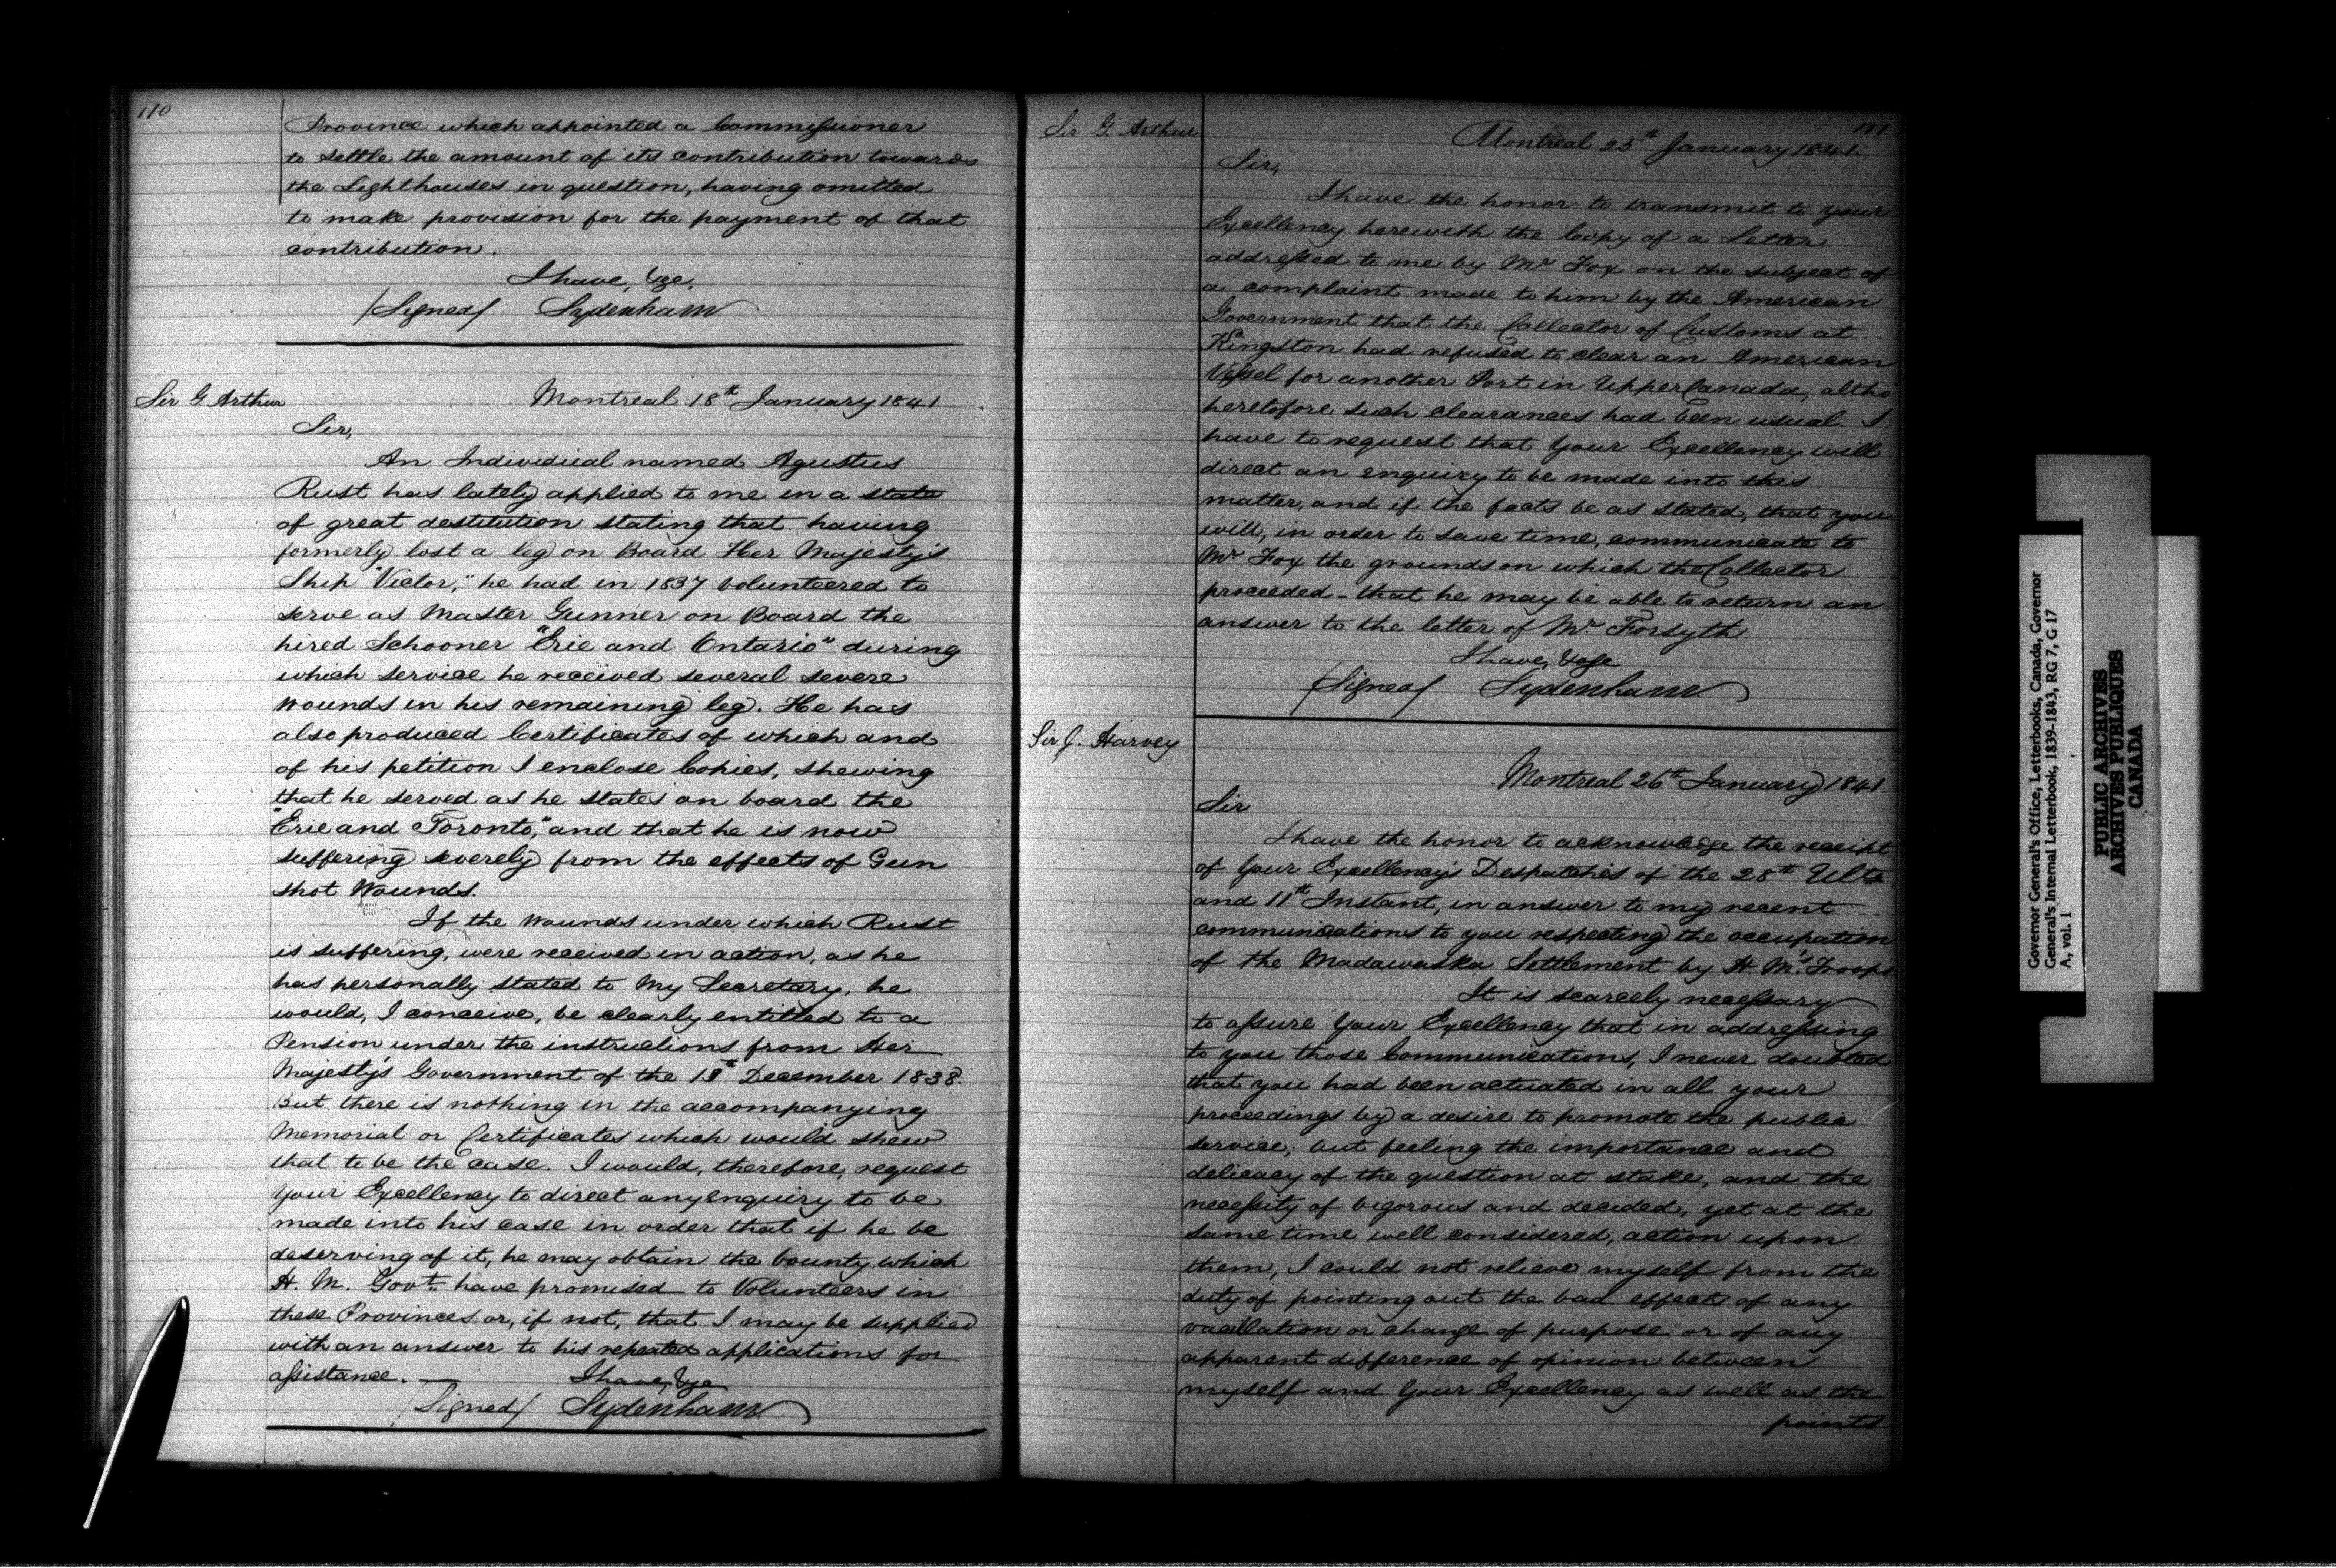 110
Province which appointed a Commissioner
to settle the amount of its contribution towards
the Lighthouses in question, having omitted
to make provision for the payment of that
contribution.
I have, &ce.
/Signed/ Sydenham
Sir G. Arthur
Montreal 18th January 1841
Sir,
An Individual named Agustus
Rust has lately applied to me in a state
of great destitution stating that having
formerly lost a leg on Board Her Majesty's
Ship "Victor," he had in 1837 volunteered to
serve as Master Gunner on Board the
hired Schooner "Erie and Ontario" during
which service he received several severe
wounds in his remaining leg. He has
also produced Certificates of which and
of his petition I enclose Copies, shewing
that he served as he states on board the
"Erie and Toronto," and that he is now
suffering severely from the effects of Gun
shot Wounds.
If the wounds under which Rust
is suffering, were received in action, as he
has personally stated to My Secretary, he
would, I conceive, be clearly entitled to a
Pension under the instructions from Her
Majesty's Government of the 13th December 1838.
But there is nothing in the accompanying
Memorial or Certificates which would shew
that to be the case. I would, therefore, request
Your Excellency to direct any enquiry to be
made into his case in order that if he be
deserving of it, he may obtain the bounty which
H. M. Govt. have promised to Volunteers in
these Provinces or, if not, that I may be supplied
with an answer to his repeated applications for
assistance.
I have, &ce
/Signed/ Sydenham
111
Sir G. Arthur
Montreal 25th January 1841.
Sir,
I have the honor to transmit to your
Excellency herewith the Copy of a Letter
addressed to me by Mr Fox on the subject of
a complaint made to him by the American
Government that the Collector of Customs at
Kingston had refused to clear an American
Vessel for another Port in Upper Canada, altho'
heretofore such clearances had been usual. I
have to request that Your Excellency will
direct an enquiry to be made into this
matter, and if the facts be as stated, that you
will, in order to save time, communicate to
Mr Fox the grounds on which the Collector
proceeded - that he may be able to return an
answer to the letter of Mr. Forsyth.
I have, &ce
/Signed/ Sydenham
Sir J. Harvey
Montreal 26th January 1841
Sir
I have the honor to acknowledge the receipt
of Your Excellency's Despatches of the 28th Ulto
and 11th Instant, in answer to my recent
communications to you respecting the occupation
of the Madawaska Settlement by H. M.'s Troops
It is scarcely necessary
to assure Your Excellency that in addressing
to you those Communications, I never doubted
that you had been actuated in all your
proceedings by a desire to promote the public
service; but feeling the importance and
delicacy of the question at stake, and the
necessity of vigorous and decided, yet at the
same time well considered, action upon
them, I could not relieve myself from the
duty of pointing out the bad effects of any
vacillation or change of purpose or of any
apparent difference of opinion between
myself and Your Excellency as well as the
points
Governor General's Office, Letterbooks, Canada, Governor
General's Internal Letterbook, 1839-1843, RG 7, G 17
A, vol. 1
PUBLIC ARCHIVES
ARCHIVES PUBLIQUES
CANADA